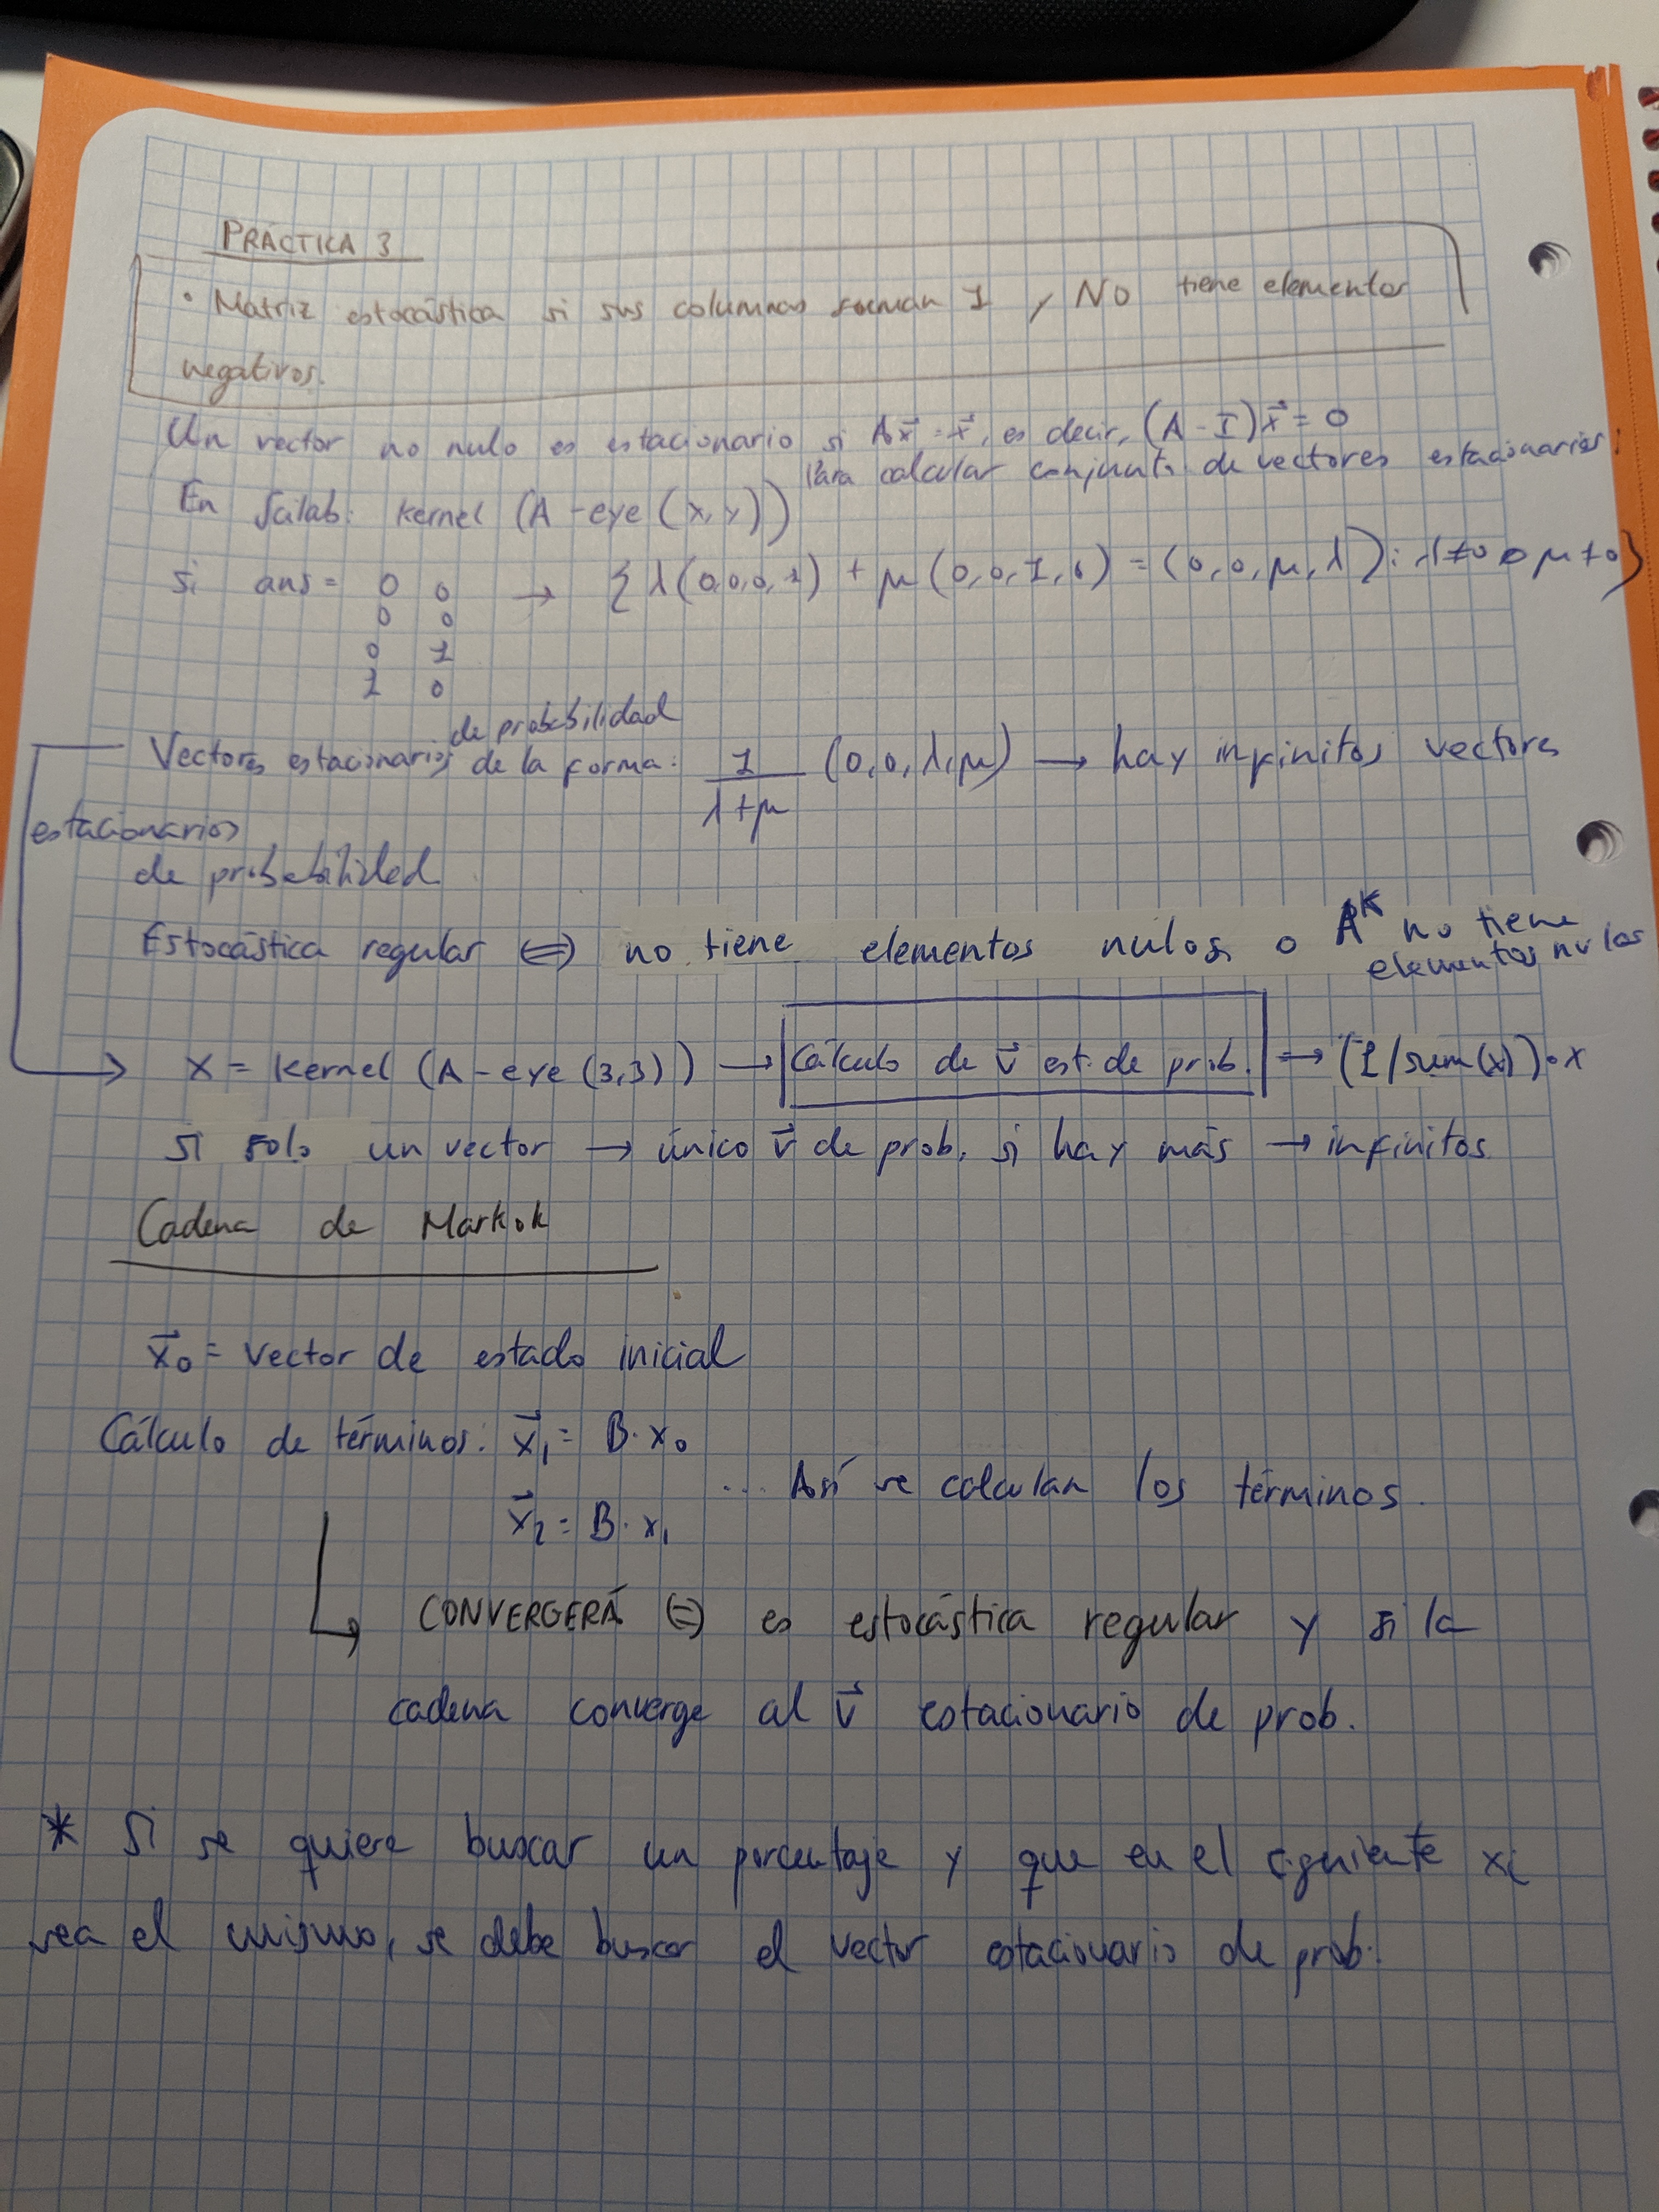 PRÁCTICA 3
• Matriz estocástica si sus columnas suman 1 y NO tiene elementos
negativos.
Un vector no nulo es estacionario si A·x⃗ = x⃗, es decir, (A - I)x⃗ = 0
Para calcular conjunto de vectores estacionarios:
En Scilab: kernel (A - eye (x,y))
si ans = 0 0 → {λ(0,0,0,1) + μ(0,0,1,0) = (0,0,μ,λ): λ≠0 o μ≠0}
0 0
0 1
1 0
de probabilidad
Vectores estacionarios de la forma: 1/(λ+μ) (0,0,λ,μ) → hay infinitos vectores
estacionarios
de probabilidad
Estocástica regular ⇔ no tiene elementos nulos o A^K no tiene
elementos nulos
x = kernel (A - eye (3,3)) → Cálculo de v⃗ est. de prob. → (1/sum(x))·x
si solo un vector → único v⃗ de prob, si hay más → infinitos
Cadena de Markok
x⃗₀ = vector de estado inicial
Cálculo de términos: x⃗₁ = B·x₀
... Así se calculan los términos.
x⃗₂ = B·x₁
↳ CONVERGERÁ ⇔ es estocástica regular y si la
cadena converge al v⃗ estacionario de prob.
* Si se quiere buscar un porcentaje y que en el siguiente xi
sea el mismo, se debe buscar el vector estacionario de prob.